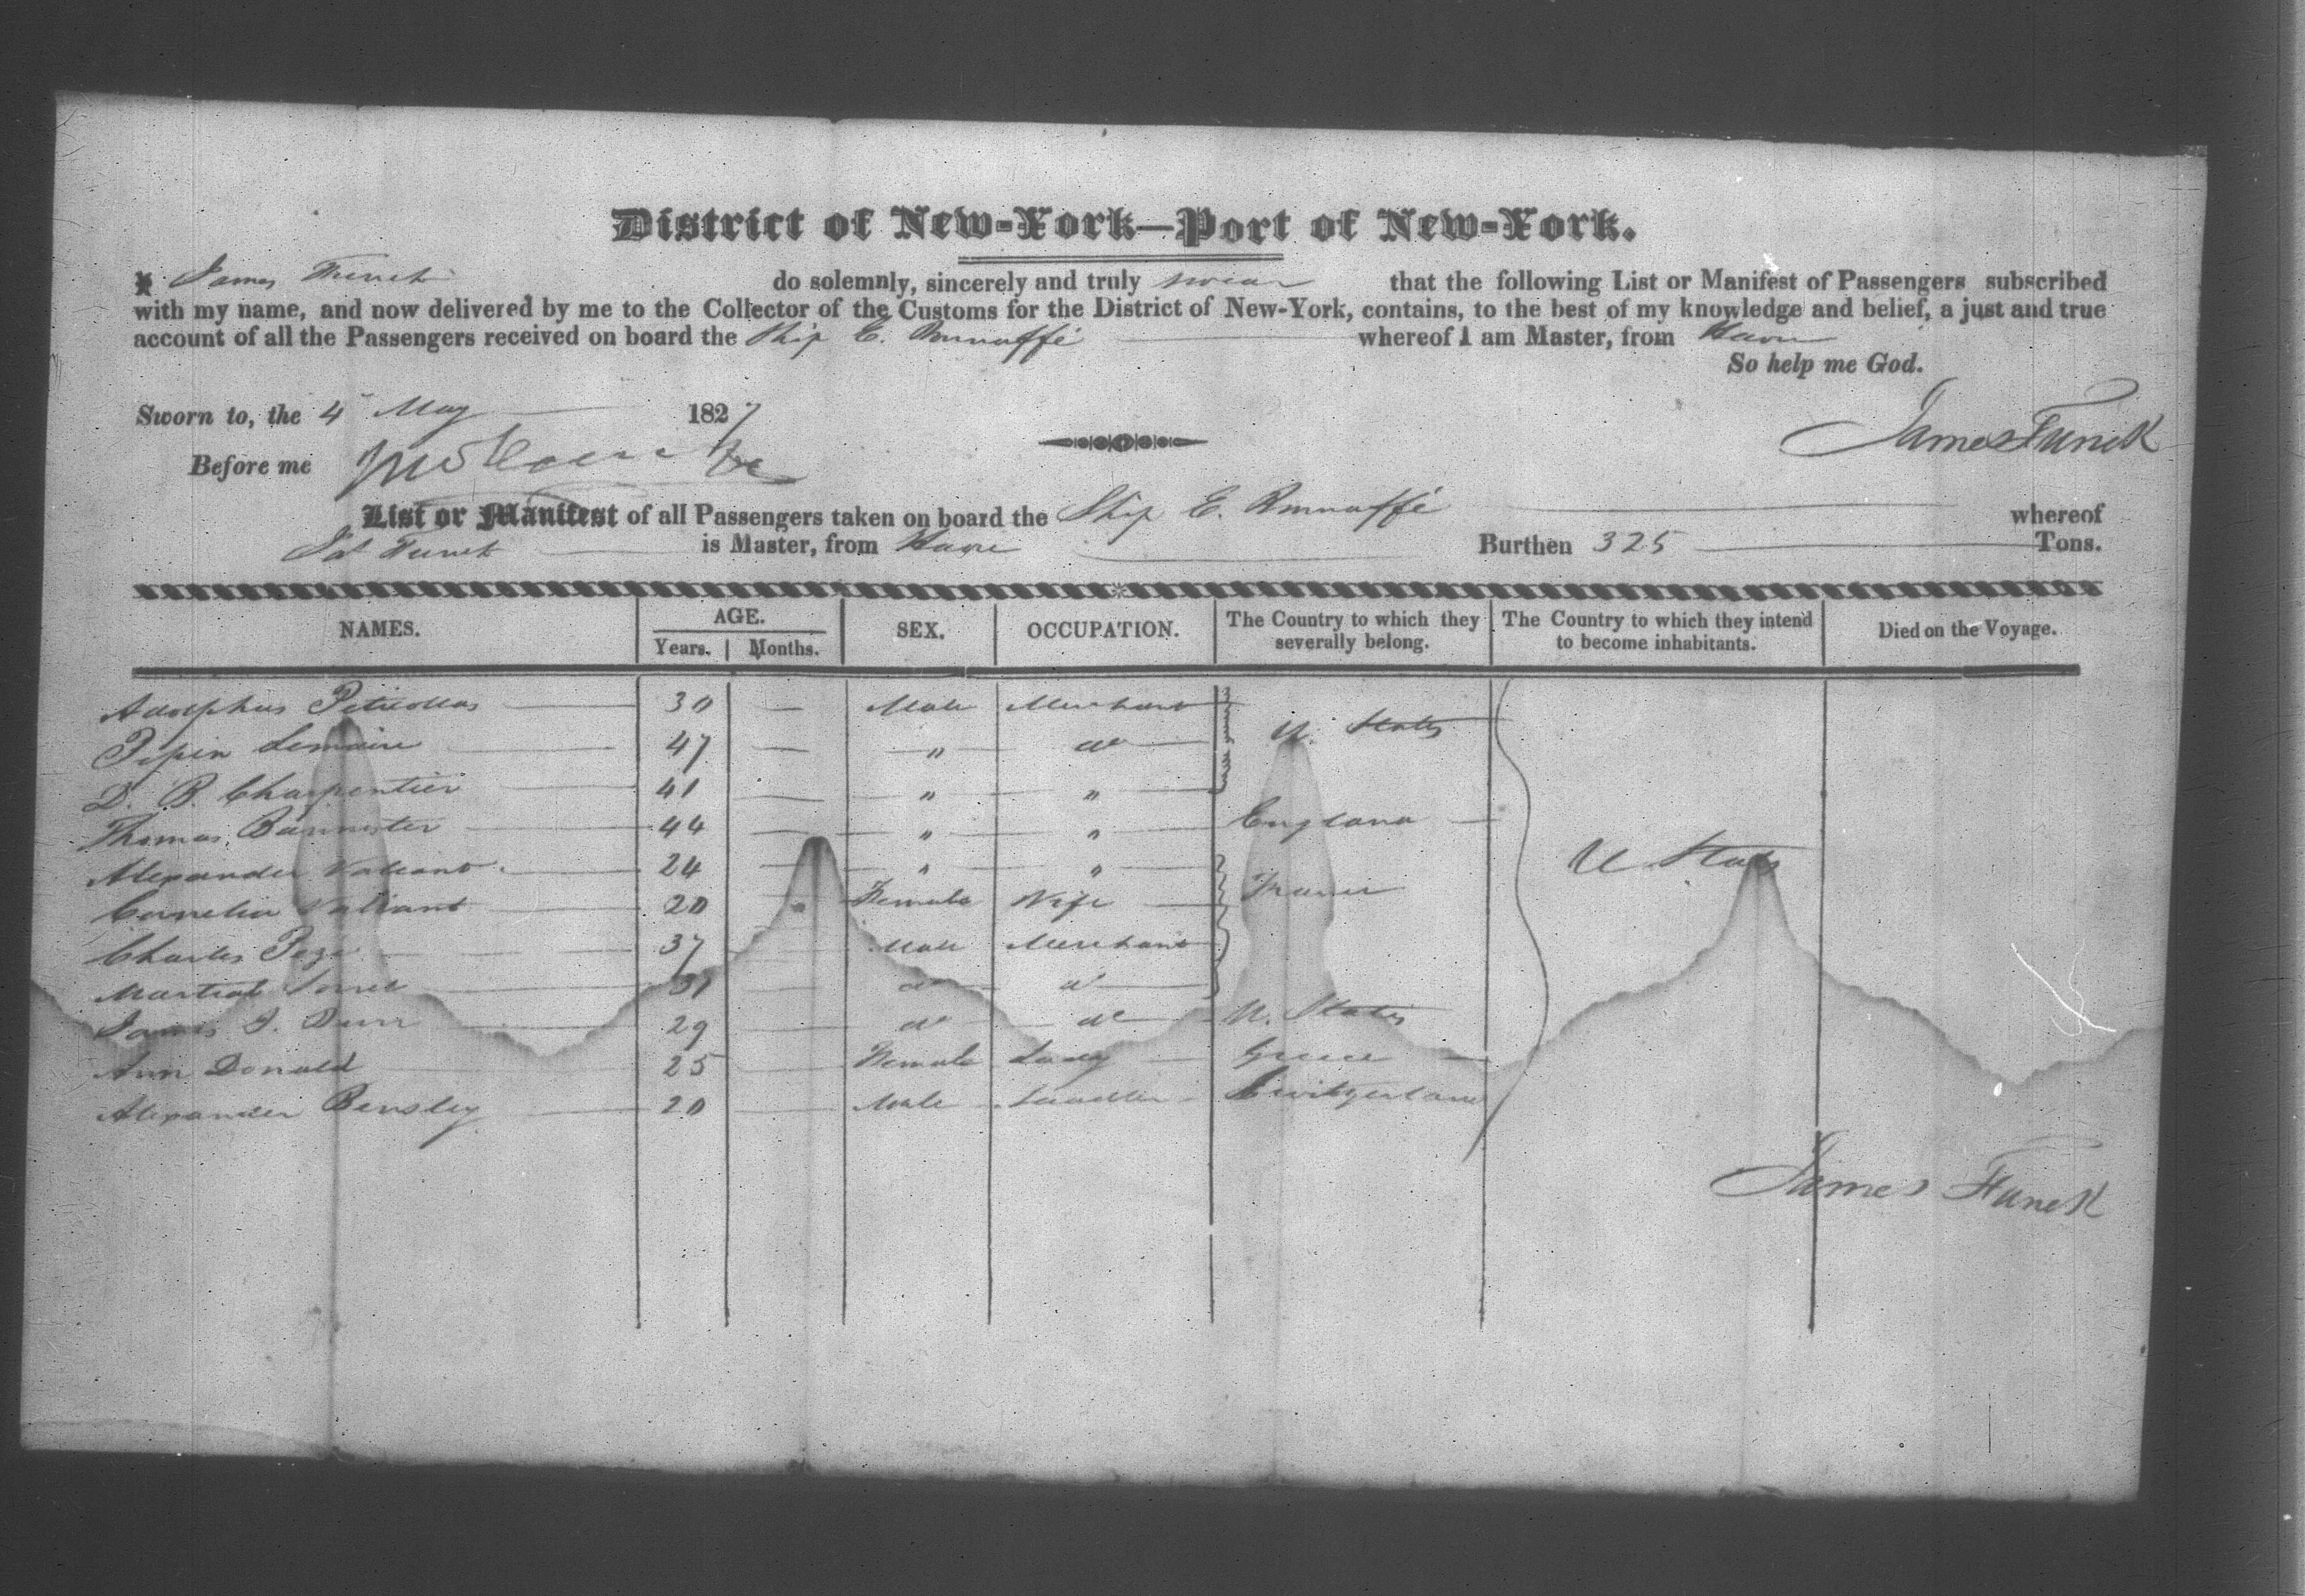 District of New-York—Port of New-York.
I James Funck do solemnly, sincerely and truly swear that the following List or Manifest of Passengers subscribed
with my name, and now delivered by me to the Collector of the Customs for the District of New-York, contains, to the best of my knowledge and belief, a just and true
account of all the Passengers received on board the Ship E. Bonnaffé whereof I am Master, from Havre
So help me God.
Sworn to, the 4 May 1827
James Funck
Before me
List or Manifest of all Passengers taken on board the Ship E. Bonnaffé whereof
Jas Funck is Master, from Havre Burthen 325 Tons.
NAMES. AGE. SEX. OCCUPATION. The Country to which they severally belong. The Country to which they intend to become inhabitants. Died on the Voyage.
Years. Months.
Adolphus 30 — Male Merchant
Pepin Lemaire 47 — " do U. States
D. B. Charpentier 41 — " "
Thomas Bannister 44 — " " England
Alexander Valiant 24 — " " U States
Cornelia Valiant 20 Female Wife France
Charles 37 Male Merchant
Martial 31 do do
James J. Durr 29 do do U. States
Ann Donald 25 Female Lady Greece
Alexander Bensley 20 Male Switzerland
James Funck